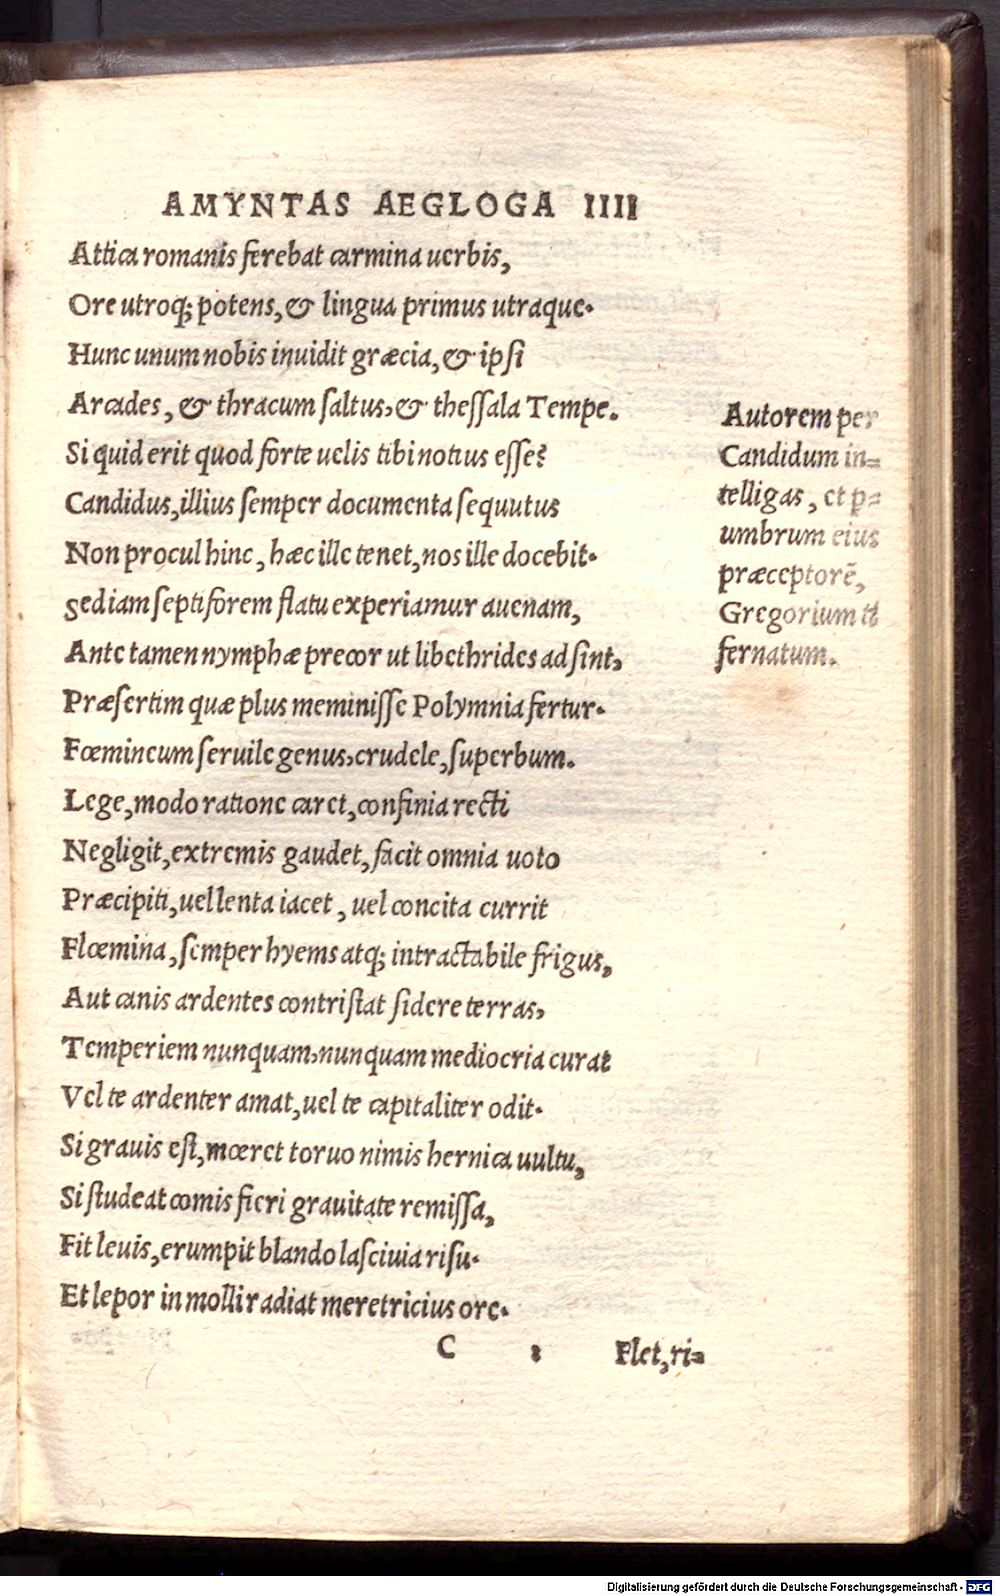 AMYNTAS AEGLOGA IIII
Attica romanis ferebat carmina uerbis,
Ore utroq; potens, & lingua primus utraque.
Hunc unum nobis inuidit græcia, & ipsi
Arcades, & thracum saltus, & thessala Tempe.
Si quid erit quod forte uelis tibi notius esse?
Candidus, illius semper documenta sequutus
Non procul hinc, hæc ille tenet, nos ille docebit.
sed iam septiforem flatu experiamur auenam,
Ante tamen nymphæ precor ut libethrides adsint,
Præsertim quæ plus meminisse Polymnia fertur.
Fœmineum seruile genus, crudele, superbum.
Lege, modo ratione caret, confinia recti
Negligit, extremis gaudet, facit omnia uoto
Præcipiti, uel lenta iacet, uel concita currit
Flœmina, semper hyems atq; intractabile frigus,
Aut canis ardentes contristat sidere terras,
Temperiem nunquam, nunquam mediocria curat
Vel te ardenter amat, uel te capitaliter odit.
Si grauis est, mœret toruo nimis hernica uultu,
Si studeat comis fieri grauitate remissa,
Fit leuis, erumpit blando lasciuia risu.
Et lepor in molli radiat meretricius ore.
C 1 Flet, ri=
Autorem per
Candidum in=
telligas, et p=
umbrum eius
præceptorē,
Gregorium ti
fernatum.
Digitalisierung gefördert durch die Deutsche Forschungsgemeinschaft - DFG